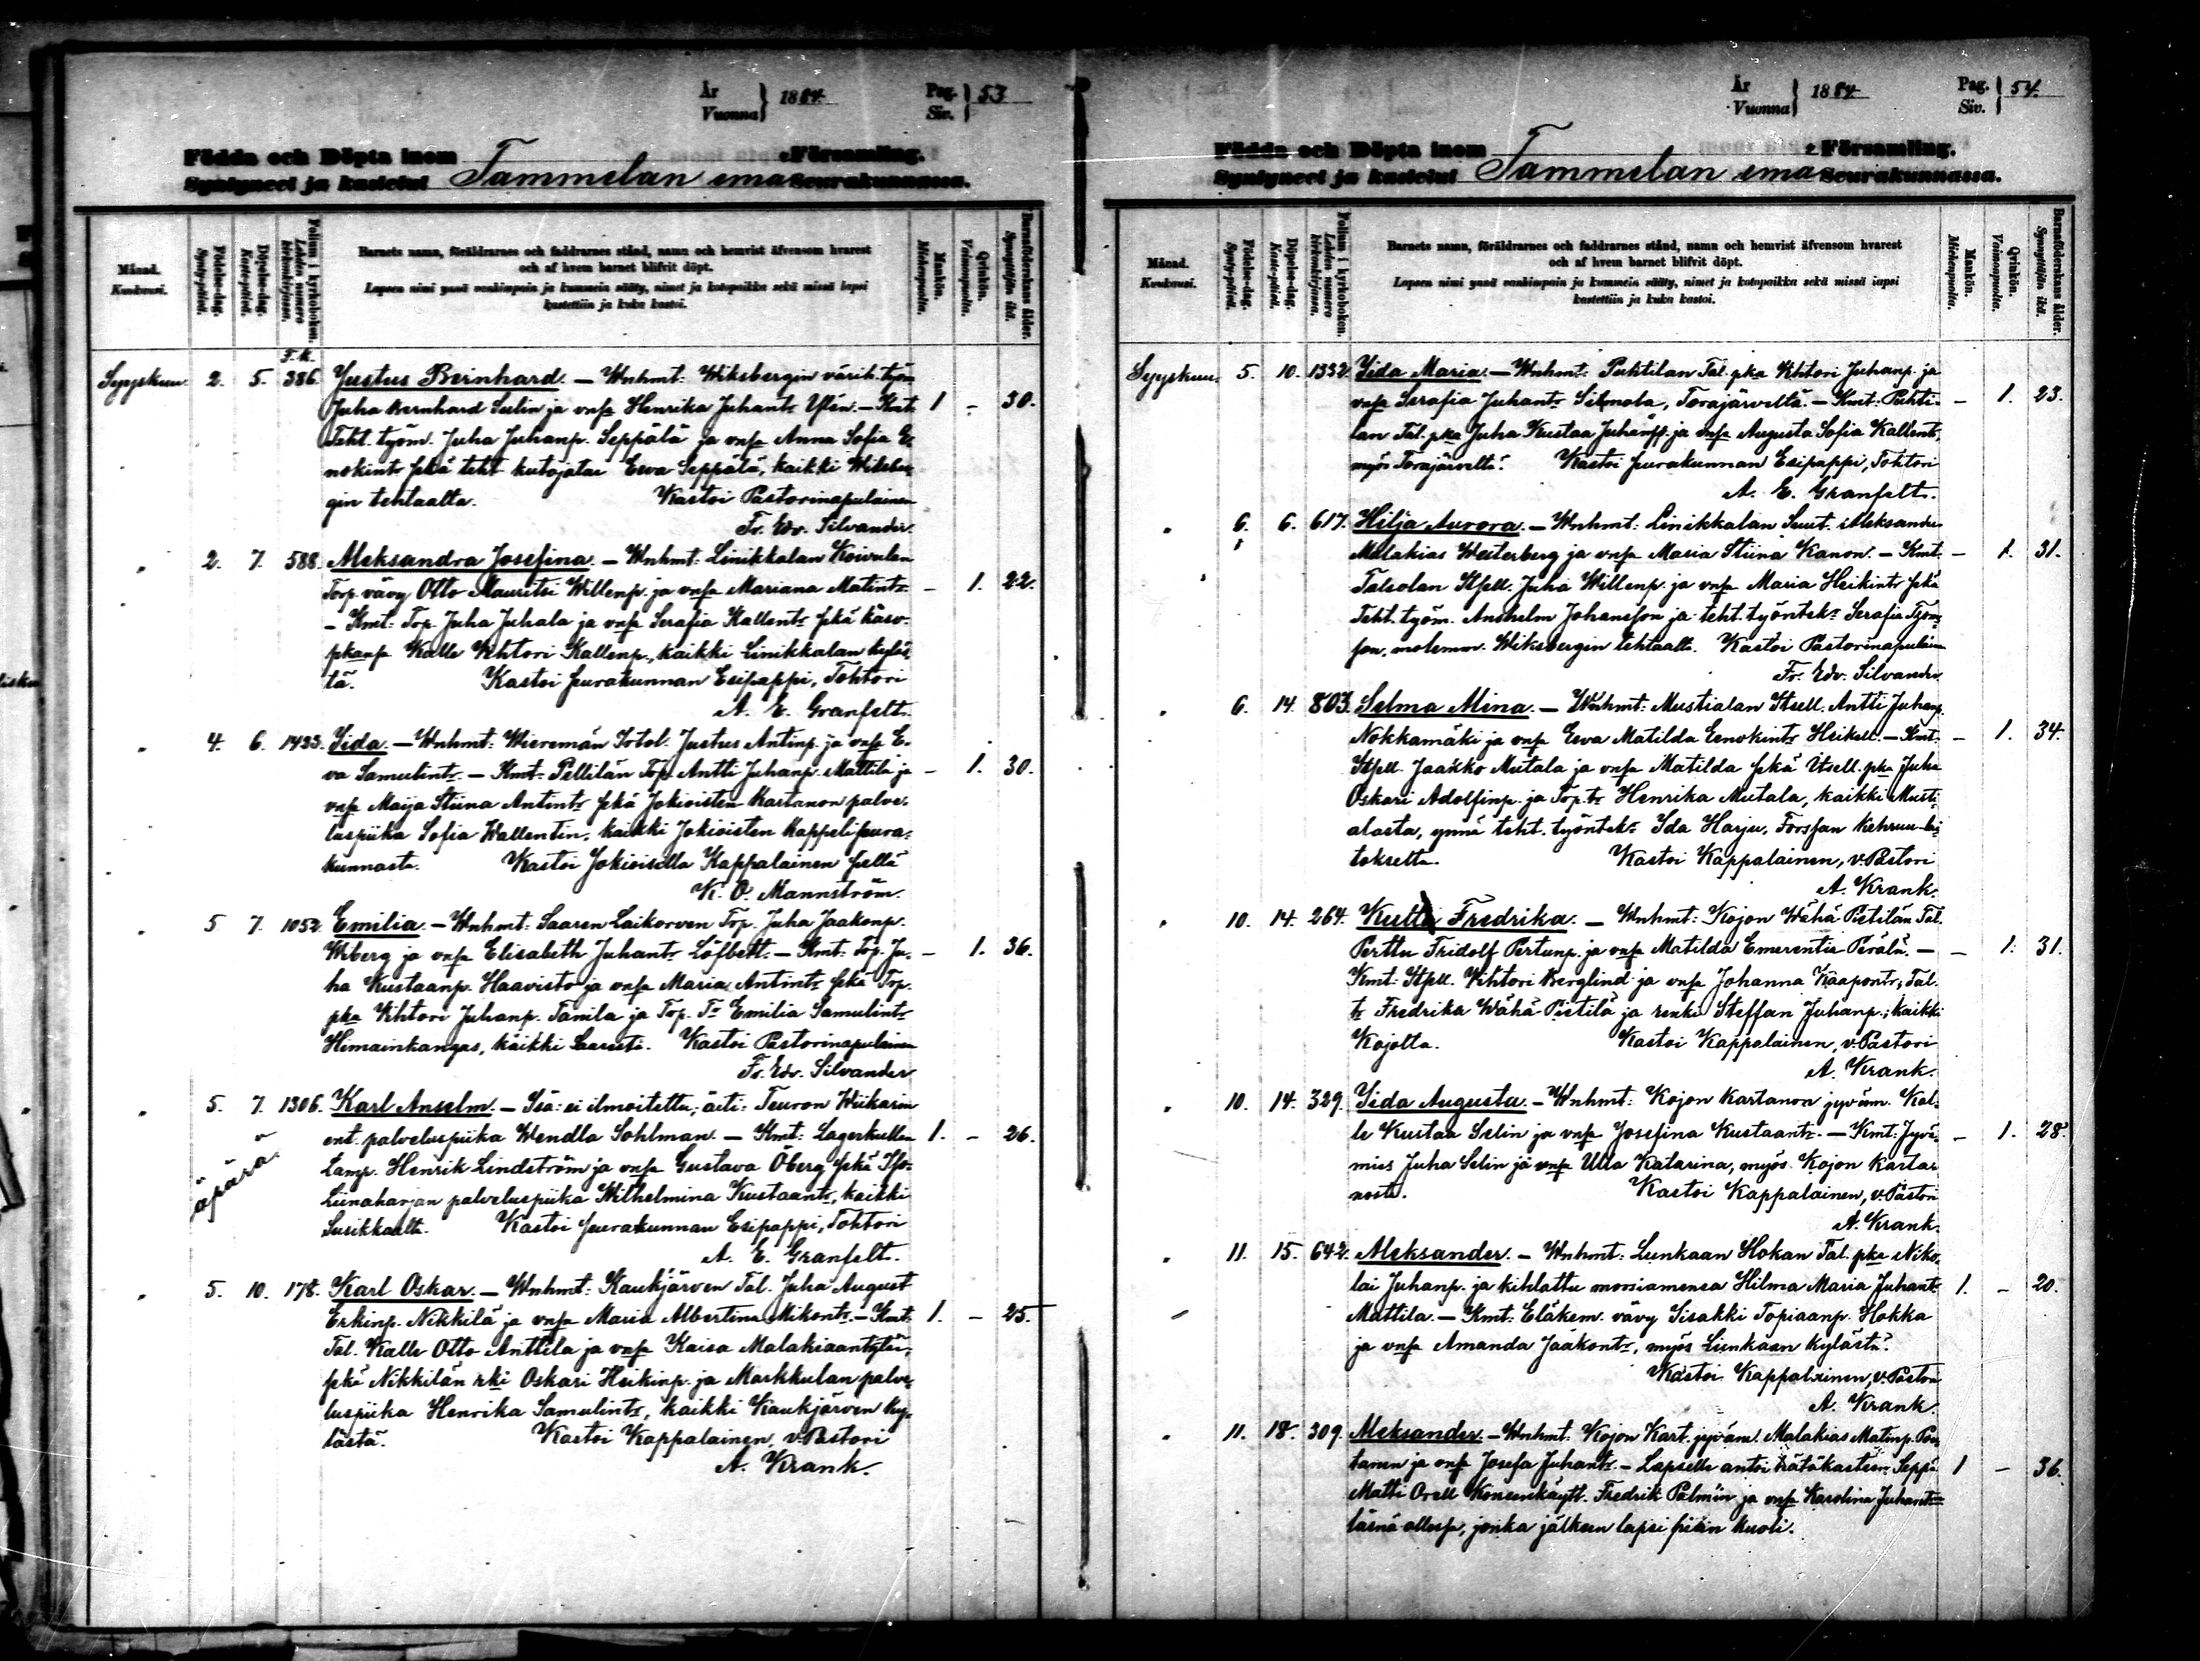 År
Vuonna } 1884.
Pag.
Siv. } 53
Födda och Döpta inom
Syntyneet ja kastetut Tammelan emä
Församling.
Seurakunnassa.
Månad.
Kuukausi.
Födelse-dag.
Synty-päivä.
Döpelse-dag.
Kaste-päivä.
Folium i kyrkoboken.
Lehden numero kirkonkirjassa.
Barnets namn, föräldrarnes och faddrarnes stånd, namn och hemvist äfvensom hvarest
och af hvem barnet blifvit döpt.
Lapsen nimi ynnä vanhimpain ja kummein sääty, nimet ja kotopaikka sekä missä lapsi
kastettiin ja kuka kastoi.
Mankön.
Miehenpuolta.
Qvinkön.
Vaimonpuolta.
Barnaföderskans ålder.
Synnyttäjän ikä.
T.K.
Syyskuu 2. 5. 386. Justus Bernhard. — Wnhmt: Wiksbergin värih. työm
Juha Bernhard Selin ja vmsa Henrika Juhantr — Kmt. 1 - 30.
Teht. työm. Juha Juhanp. Seppälä ja vmsa Anna Sofia E-
nokintr sekä teht kutojatar Eeva Seppälä, kaikki Wiksber-
gin tehtaalta. Kastoi Pastorinapulainen
Fr. Edv. Silvander.
" 2. 7. 588. Aleksandra Josefina. — Wnhmt: Linikkalan Koivulan
Torp. vävy Otto Mauritsi Willenp. ja vmsa Mariana Matintr — 1. 22.
— Kmt: Torp. Juha Juhala ja vmsa Serafia Kallentr sekä Kasv.
Kalle Wihtori Kallenp., kaikki Linikkalan kyläs-
tä. Kastoi seurakunnan Esipappi, Tohtori
A. E. Granfelt.
" 4. 6. 1433. Iida. — Wnhmt: Wieremän Irtol. Justus Antinp. ja vmsa E-
va Samulintr. — Kmt: Pellilän Torp. Antti Juhanp. Mattila ja — 1. 30.
vmsa Maija Stiina Antintr sekä Jokioisten Kartanon palve-
luspiika Sofia Wallentin, kaikki Jokioisten Kappeliseura-
kunnasta. Kastoi Jokioisilla Kappalainen siellä
K. O. Mannström.
" 5 7. 1052 Emilia. — Wnhmt: Saaren Laikorven Torp. Juha Jaakonp.
Wiberg ja vmsa Elisabeth Juhantr Löfbett. — Kmt: Torp. Ju- — 1. 36.
ha Kustaanp. Haavisto ja vmsa Maria Antintr sekä Torp.
pka Wihtori Juhanp. Tanila ja Torp. Tr Emilia Samulintr
Himainkangas, kaikki Saaresta. Kastoi Pastorinapulainen
Fr. Edv. Silvander
" 5. 7. 1306. Karl Anselm. — Isä: ei ilmoitettu; äiti: Teuron Wiikarin
äpärä
ent. palveluspiika Wendla Sohlman. — Kmt: Lagerkullen 1. - 26.
Lamp. Henrik Lindström ja vmsa Gustava Öberg sekä Iso-
Liinaharjan palveluspiika Wilhelmina Kustaantr, kaikki
Susikkaalta. Kastoi seurakunnan Esipappi, Tohtori
A. E. Granfelt.
" 5. 10. 178. Karl Oskar. — Wnhmt: Kaukjärven Tal. Juha August
Erkinp. Nikkilä ja vmsa Maria Albertina Mikontr. — Kmt: 1. - 25.
Tal. Kalle Otto Anttila ja vmsa Kaisa Malakiaantytär,
sekä Nikkilän rki Oskari Heikinp. ja Markkulan palve-
luspiika Henrika Samulintr, kaikki Kaukjärven ky-
lästä. Kastoi Kappalainen, v. Pastori
A. Krank.
År
Vuonna } 1884
Pag.
Siv. } 54.
Födda och Döpta inom
Syntyneet ja kastetut Tammelan emä
Församling.
Seurakunnassa.
Månad.
Kuukausi.
Födelse-dag.
Synty-päivä.
Döpelse-dag.
Kaste-päivä.
Folium i kyrkoboken.
Lehden numero kirkonkirjassa.
Barnets namn, föräldrarnes och faddrarnes stånd, namn och hemvist äfvensom hvarest
och af hvem barnet blifvit döpt.
Lapsen nimi ynnä vanhimpain ja kummein sääty, nimet ja kotopaikka sekä missä lapsi
kastettiin ja kuka kastoi.
Mankön.
Miehenpuolta.
Qvinkön.
Vaimonpuolta.
Barnaföderskans ålder.
Synnyttäjän ikä.
Syyskuu. 5. 10. 1332. Iida Maria. — Wnhmt: Puhtilan Tal. pka Wihtori Juhanp. ja
vmsa Serafia Juhantr Torajärveltä. — Kmt: Puhti- — 1. 23.
lan Tal. pka Juha Kustaa Juhanp. ja vmsa Augusta Sofia Kallentr,
myös Torajärveltä. Kastoi seurakunnan Esipappi, Tohtori
A. E. Granfelt.
" 6. 6. 617. Hilja Aurora. — Wnhmt: Linikkalan Suut. Aleksander
Malakias Westerberg ja vmsa Maria Stiina Kanon. — Kmt. — 1. 31.
Talsolan Itsell. Juha Willenp. ja vmsa Maria Heikintr sekä
Teht. työm. Anshelm Johansson ja teht. työntek: Serafia
son, molemm. Wiksbergin tehtaalta. Kastoi Pastorinapulainen
Fr. Edv. Silvander
" 6. 14. 803. Selma Mina. — Wnhmt: Mustialan Itsell. Antti Juhanp.
Nokkamäki ja vmsa Eeva Matilda Eenokintr Heikell. — Kmt: — 1. 34.
Itsell. Jaakko Mutala ja vmsa Matilda sekä Itsell. pka Juha
Oskari Adolfinp. ja Torp. tr Henrika Mutala, kaikki Musti-
alasta, ynnä teht. työntek: Ida Harju, Forssan Kehruu-lai-
tokselta. Kastoi Kappalainen, v. Pastori
A. Krank.
" 10. 14. 264. Fredrika. — Wnhmt: Kojon Wähä Pietilän Tal.
Perttu Fridolf Pertunp. ja vmsa Matilda Emerentia Perälä. — — 1. 31.
Kmt: Itsell. Wihtori Berglind ja vmsa Johanna Kaapontr; Tal.
tr Fredrika Wähä-Pietilä ja renki Steffan Juhanp.; kaikki
Kojolta. Kastoi Kappalainen, v. Pastori
A. Krank.
" 10. 14. 329. Iida Augusta. — Wnhmt: Kojon Kartanon jyväm. Kal-
le Kustaa Selin ja vmsa Josefina Kustaantr. — Kmt: Jyvä- — 1. 28.
mies Juha Selin ja vmsa Ulla Katarina, myös Kojon Karta-
nosta. Kastoi Kappalainen, v. Pastori
A. Krank.
" 11. 15. 642. Aleksander. — Wnhmt: Lunkaan Hokan Tal. pka Niko-
lai Juhanp. ja kihlattu morsiamensa Hilma Maria Juhantr 1. - 20.
Mattila. — Kmt: Eläkem. vävy Iisakki Topiaanp. Hokka
ja vmsa Amanda Jaakontr, myös Lunkaan kylästä.
Kastoi Kappalainen, v. Pastori
A. Krank.
" 11. 18. 309. Aleksander. — Wnhmt. Kojon Kart. jyväm. Malakias Matinp.
ja vmsa Josefa Juhantr. — Lapselle antoi hätäkasteen Seppä 1 - 36.
Matti Orell Koneenkäytt. Fredrik Palmin ja vmsa Karolina Juhantr
läsnä ollessa, jonka jälkeen lapsi pian kuoli.